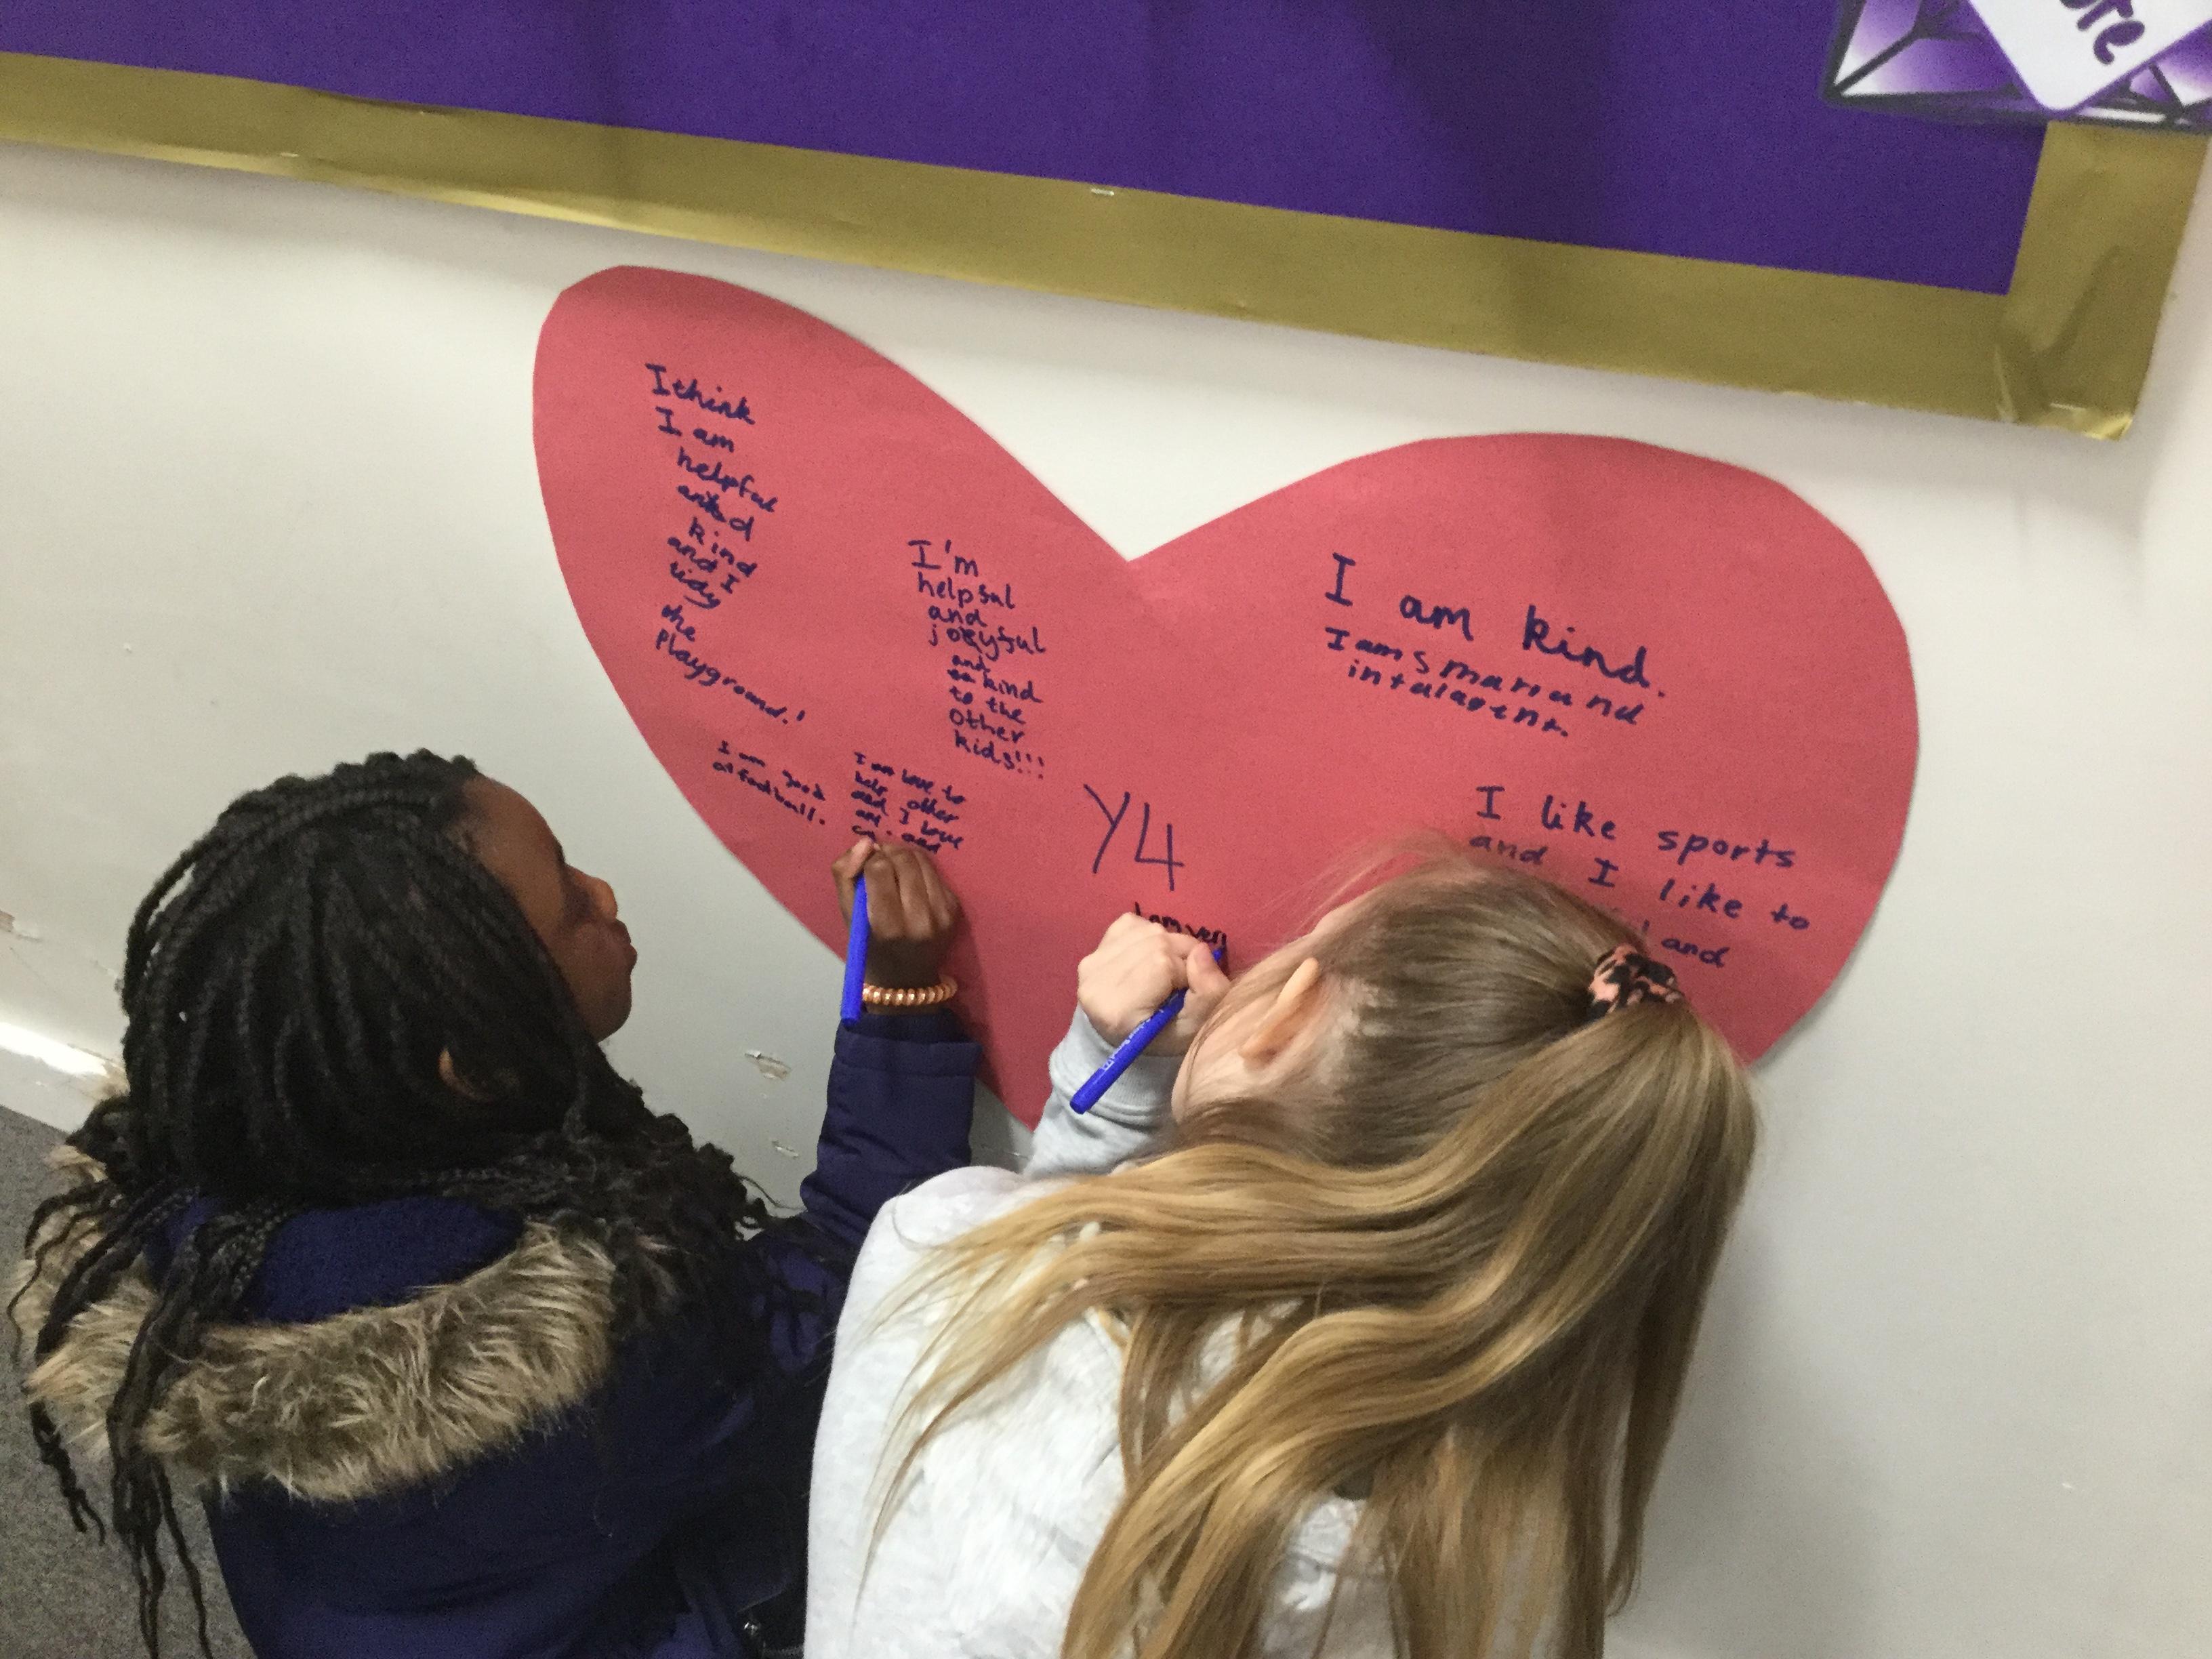 ore
I think
I am
helpful
and
kind
and I
tidy
the
Playground!
I'm
helpful
and
joyful
and
kind
to the
other
kids!!!
I am good
at football.
I am love to
help other
and I love
and
Y4
I am very
I am kind.
I am smart and
intalagent.
I like sports
and I like to
and